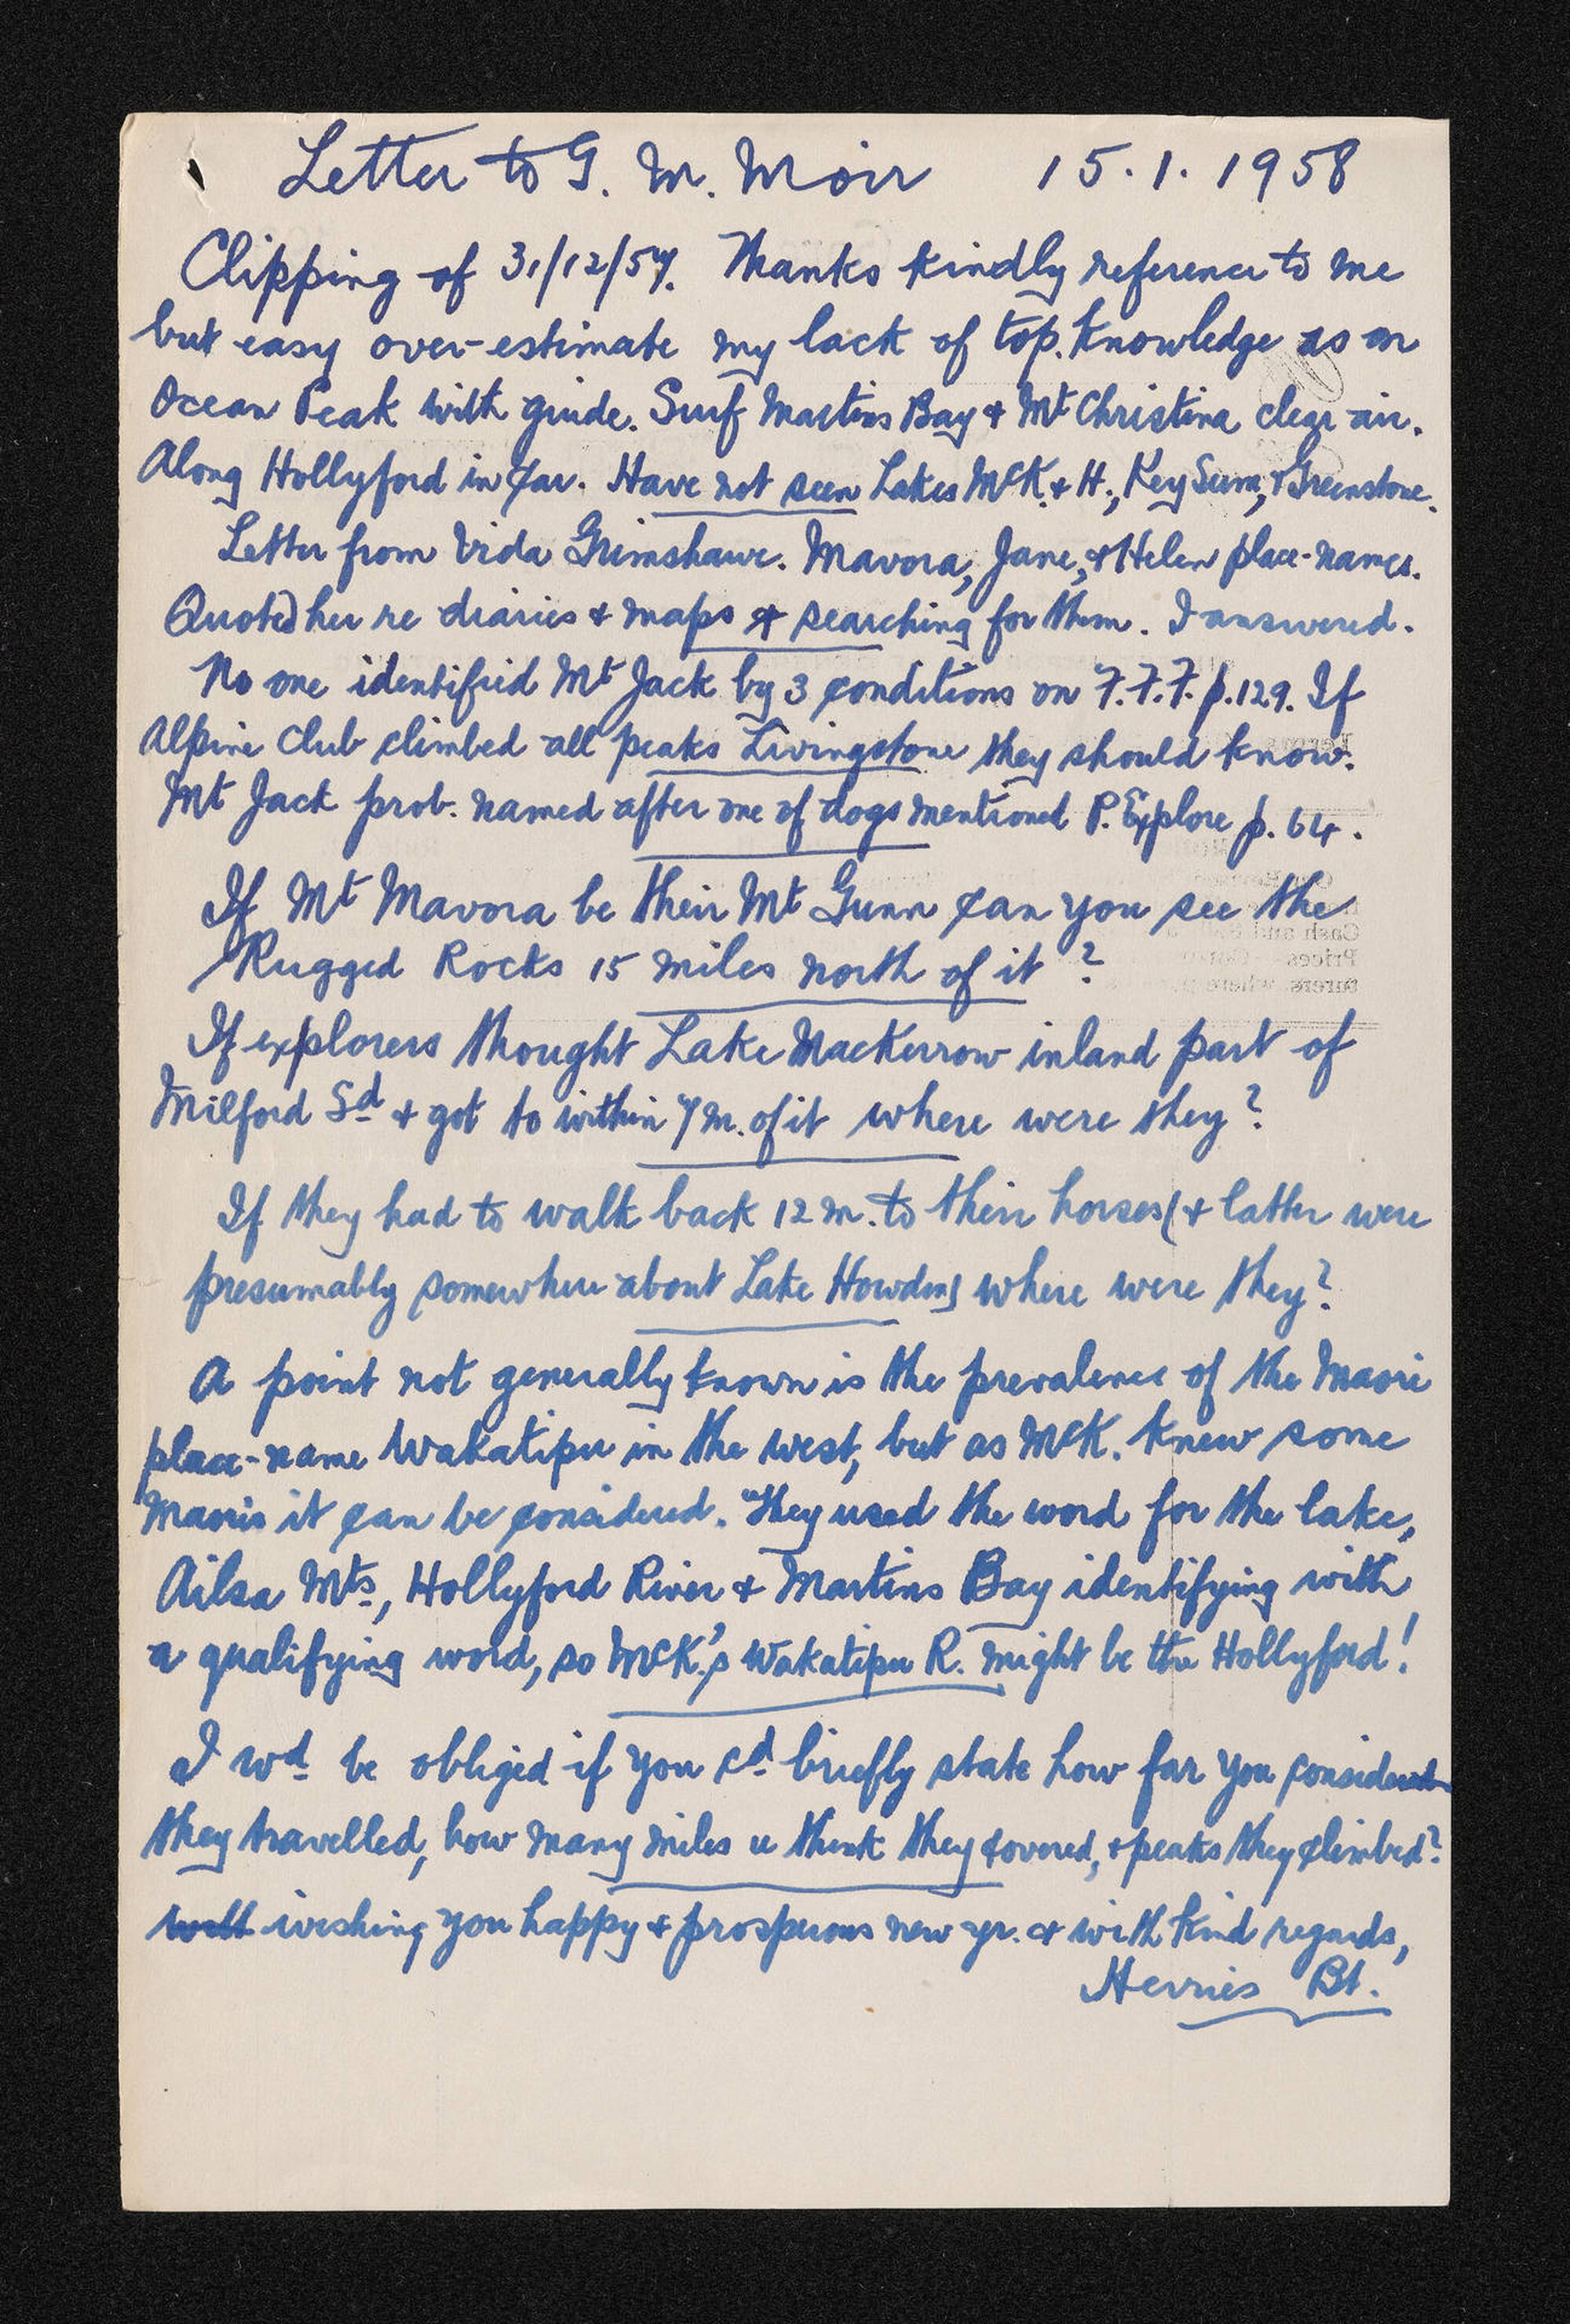 Letter to G. M. Moir 15.1.1958
Clipping of 31/12/57. Thanks kindly reference to me
but easy over-estimate my lack of top. knowledge as on
Ocean Peak with guide. Surf Martins Bay & Mt Christina clear air.
Along Hollyford in car. Have not seen Lakes McK. & H., Key Sum, & Greenstone.
Letter from Vida Grimshawe. Mavora, Jane, & Helen place-names.
Quoted her re diaries & maps & searching for them. I answered.
No one identified Mt Jack by 3 conditions on F.F.F. p.129. If
Alpine Club climbed all peaks Livingstone they should know.
Mt Jack prob. named after one of dogs mentioned P. Explore p. 64.
If Mt Mavora be their Mt Gunn can you see the
Rugged Rocks 15 miles north of it?
If explorers thought Lake Mackerrow inland part of
Milford Sd & got to within 7 m. of it where were they?
If they had to walk back 12 m. to their horses (& latter were
presumably somewhere about Lake Howden) where were they?
A point not generally known is the prevalence of the Maori
place-name Wakatipu in the west, but as McK. knew some
Maoris it can be considered. They used the word for the lake,
Ailsa Mts, Hollyford River & Martins Bay identifying with
a qualifying word, so McK.'s Wakatipu R. might be the Hollyford!
I wd be obliged if you cd briefly state how far you consider
they travelled, how many miles u think they covered, & peaks they climbed?
wishing you happy & prosperous new yr. & with kind regards,
Herries Bt.